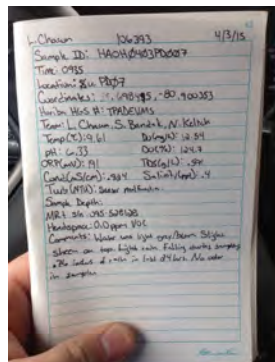 L. Chaum 126393 4/3/15
Sample ID: HAOH0403PD007
Time: 0935
Location:
Coordinates: .698495, -80.900353
Horiba HGS #: TPADEUMS
Team: L. Chaum, S. Bendek, N. Keltch
Temp(°C): 9.61 Do(mg/L): 12.54
pH: 6.33 DO(%): 124.7
ORP(mV): 191 TDS(g/L):
Cond(mS/cm): .924 Salinity(ppt): .4
Turb(NTU): Sensor malfunction
Sample Depth:
MR+ s/n: 095-528128
Headspace: 0.0 ppm VOC
Comments: Water was light grey/brown. Slight
sheen on top. Light rain falling during sampling
inches of rain in last 24 hrs. No odor
in sample.